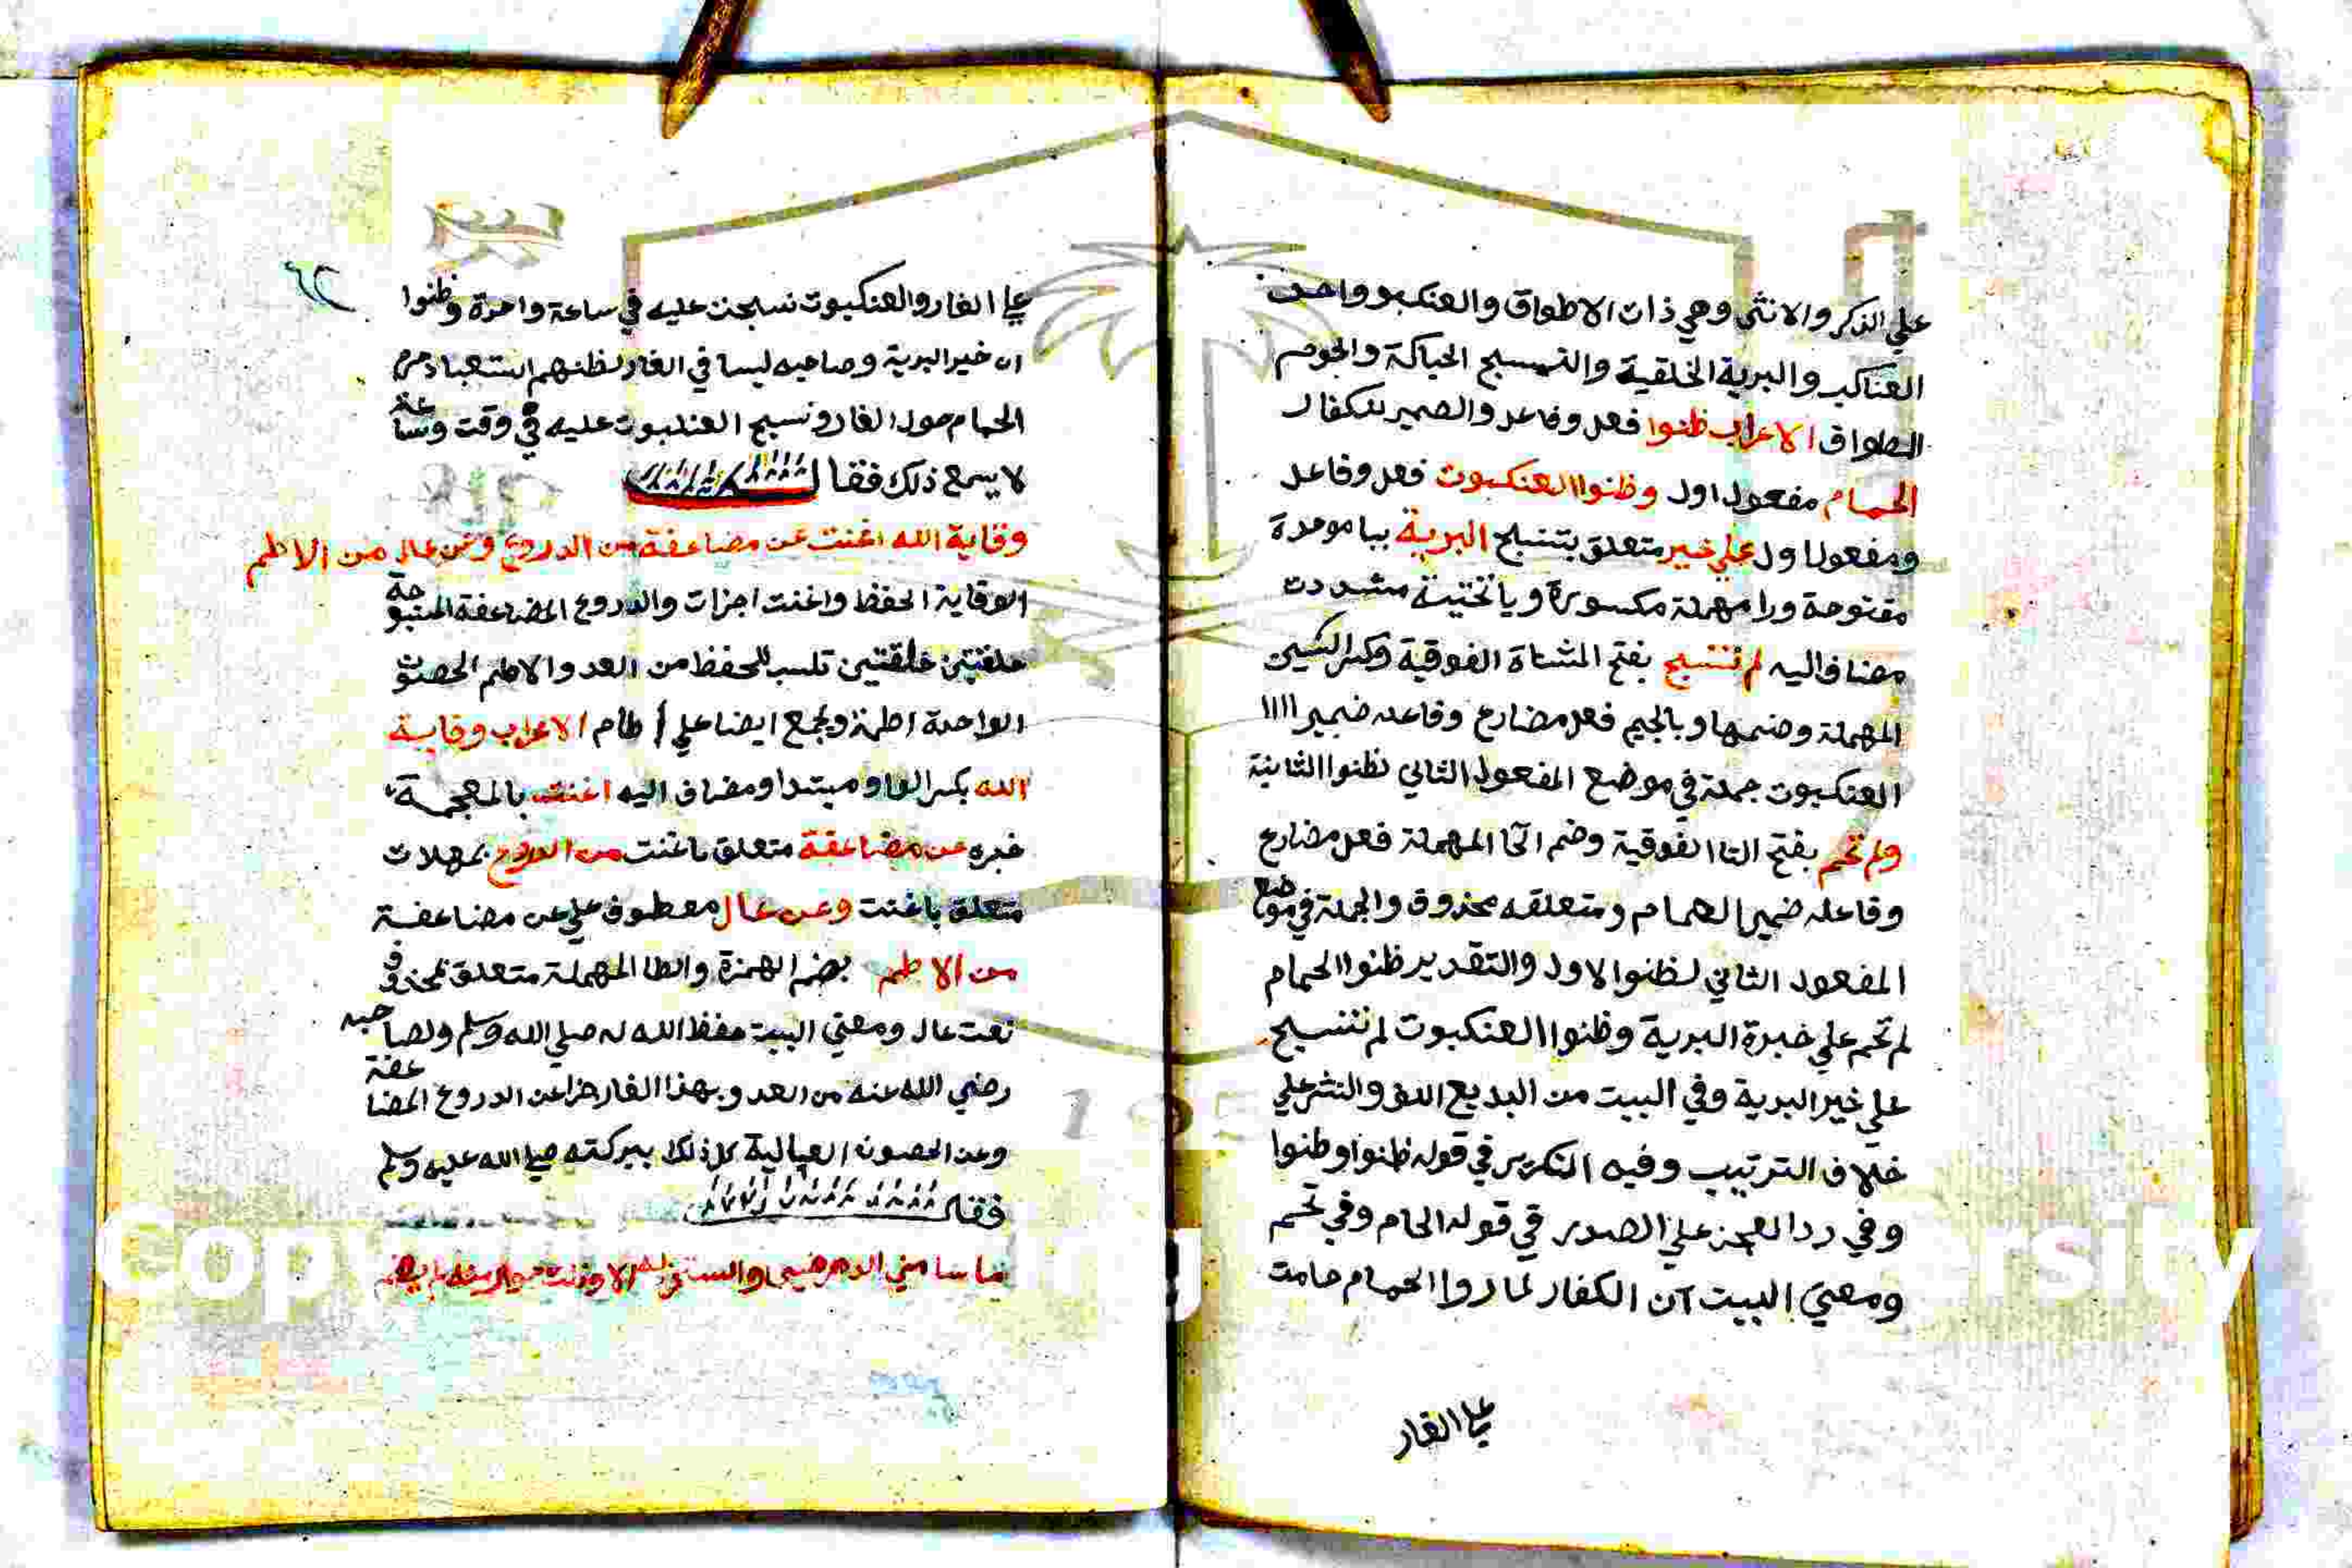 علي الذكر والانثي وهي ذات الاطواق والعنكبوت واحد
العناكب والبرية الخلقية والنسج الحياكة والحوم
الطواف الاعراب ظنوا فعل وفاعل والضمير للكفار
الحمام مفعول اول وظنوا العنكبوت فعل وفاعل
ومفعول اول علي خير متعلق بتنسج البرية ببا موحدة
مفتوحة ورا مهملة مكسورة ويا تحتية مشددت
مضاف اليه لم تنسج بفتح المثناة الفوقية وكسر السين
المهملة وضمها وبالجيم فعل مضارع وفاعله ضمير
العنكبوت جملة في موضع المفعول الثاني لظنوا الثانية
ولم تحم بفتح التا الفوقية وضم الحا المهملة فعل مضارع
وفاعله ضمير الحمام ومتعلقه محذوف والجملة في موضع
المفعول الثاني لظنوا الاول والتقدير ظنوا الحمام
لم تحم علي خيرة البرية وظنوا العنكبوت لم تنسج
علي خير البرية وفي البيت من البديع اللف والنشر علي
خلاف الترتيب وفيه التكرير في قوله ظنوا وظنوا
وفي رد العجز علي الصدر في قوله الحام وفي تحم
ومعني البيت ان الكفار لما روا الحمام حامت
علي الغار
٦٢
علي الغار والعنكبوت نسجت عليه في ساعة واحدة وظنوا
ان خير البرية وصاحبه ليسا في الغار لظنهم استبعاد حوم
الحمام حول الغار ونسج العنكبوت عليه في وقت وساعة
لا يسع ذلك فقال
وقاية الله اغنت عن مضاعفة من الدروع وعن عال من الاطم
الوقاية الحفظ واغنت اجزات والدروع المضاعفة المنسوجة
حلقتين حلقتين تلبس للحفظ من العدو والاطم الحصون
الواحدة اطمة ويجمع ايضا علي اطام الاعراب وقاية
الله بكسر الواو مبتدا ومضاف اليه اغنت بالمعجمة
خبره عن مضاعفة متعلق باغنت من الدروع بمهملات
متعلق باغنت وعن عال معطوف علي عن مضاعفة
من الاطم بضم الهمزة والطا المهملة متعلق بمحذوف
نعت عال ومعني البيت حفظ الله له صلي الله وسلم ولصاحبه
رضي الله عنه من العدو بهذا الغار اجزا عن الدروع المضاعفة
وعن الحصون العالية كل ذلك ببركته صلي الله عليه وسلم
فقال
ما سامني الدهر ضيما واستجرت به الا ونلت جوارا منه لم يضم